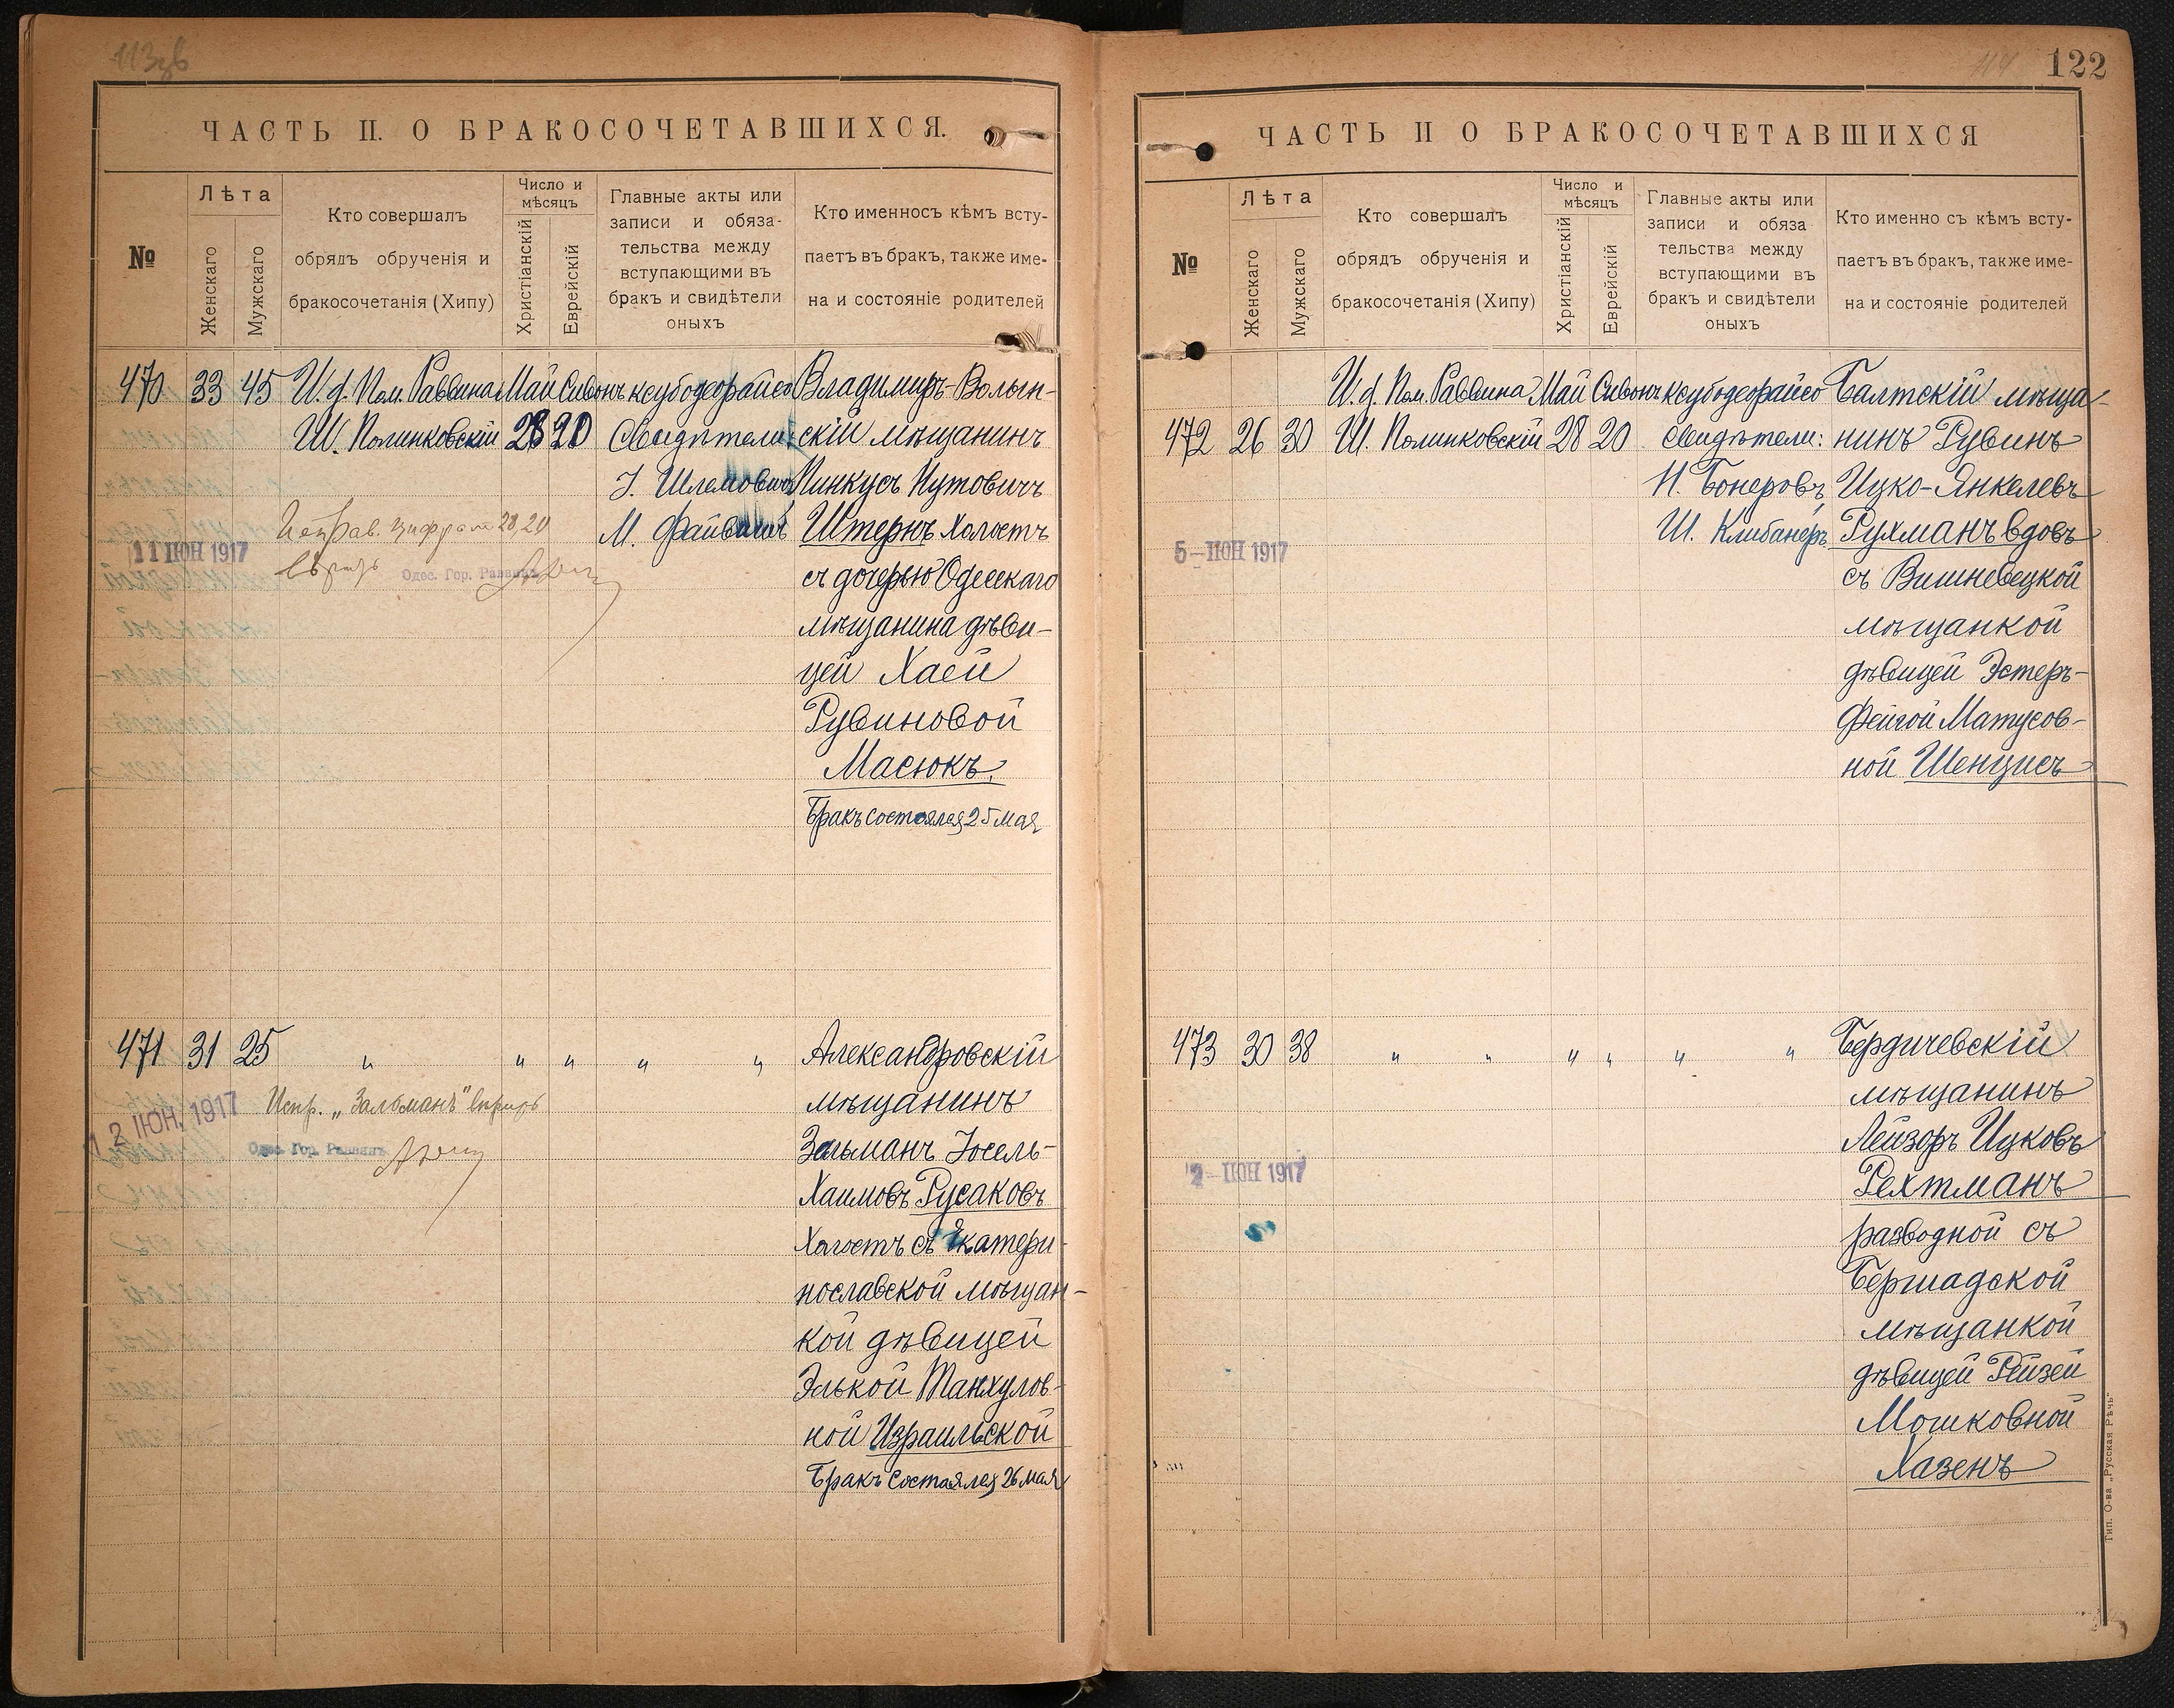 122
ЧАСТЬ II. О БРАКОСОЧЕТАВШИХСЯ.
№
Лѣта
Женскаго
Мужскаго
Кто совершалъ
обрядъ обрученія и
бракосочетанія (Хипу)
Число и
мѣсяцъ
Христіанскій
Еврейскій
Главные акты или
записи и обяза-
тельства между
вступающими въ
бракъ и свидѣтели
оныхъ
Кто именносъ кѣмъ всту-
паетъ въ бракъ, также име-
на и состояніе родителей
470 33 45 И. д. Пом. Раввина Май Сивонъ ксубодеорайсо Владимиръ-Волын-
Ш. Полинковскій 28 20 Свидѣтели: скій мѣщанинъ
І. Шлемовичъ Пинкусъ Нутовичъ
М. Файвишъ Штернъ Холостъ
Исправ. цифрами 28, 20
11 ІЮН 1917
вѣрнъ
Одес. Гор. Раввинъ
съ дочерью Одесскаго
мѣщанина дѣви-
цей Хаей
Рувиновой
Масюкъ.
Бракъ состоялся 25 мая
471 31 25 " " " " " Александровскій
мѣщанинъ
Испр. „Зальманъ" вѣрнъ
12 ІЮН. 1917
Одес. Гор. Раввинъ
Зальманъ Іосель-
Хаимовъ Русаковъ
Холостъ съ Екатери-
нославской мѣщан-
кой дѣвицей
Элькой Танхумов-
ной Израильской
Бракъ состоялся 26 мая
ЧАСТЬ II О БРАКОСОЧЕТАВШИХСЯ
№
Лѣта
Женскаго
Мужскаго
Кто совершалъ
обрядъ обрученія и
бракосочетанія (Хипу)
Число и
мѣсяцъ
Христіанскій
Еврейскій
Главные акты или
записи и обяза
тельства между
вступающими въ
бракъ и свидѣтели
оныхъ
Кто именно съ кѣмъ всту-
паетъ въ бракъ, также име-
на и состояніе родителей
И. д. Пом. Раввина Май Сивонъ ксубодеорайсо Балтскій мѣща-
472 26 30 Ш. Полинковскій 28 20 Свидѣтели: нинъ Рувинъ
Н. Бонеровъ Ицко-Янкелевъ
Ш. Клибанеръ Рухманъ вдовъ
5 - ІЮН 1917
съ Вишневецкой
мѣщанкой
дѣвицей Эстеръ-
Фейгой Матусов-
ной Шенцисъ
473 30 38 " " " " " " Бердичевскій
мѣщанинъ
Лейзоръ Ицковъ
2 - ІЮН 1917
Рехтманъ
разводной съ
Бершадской
мѣщанкой
дѣвицей Рейзей
Мошковной
Хазенъ
Тип. О-ва „Русская Рѣчь"